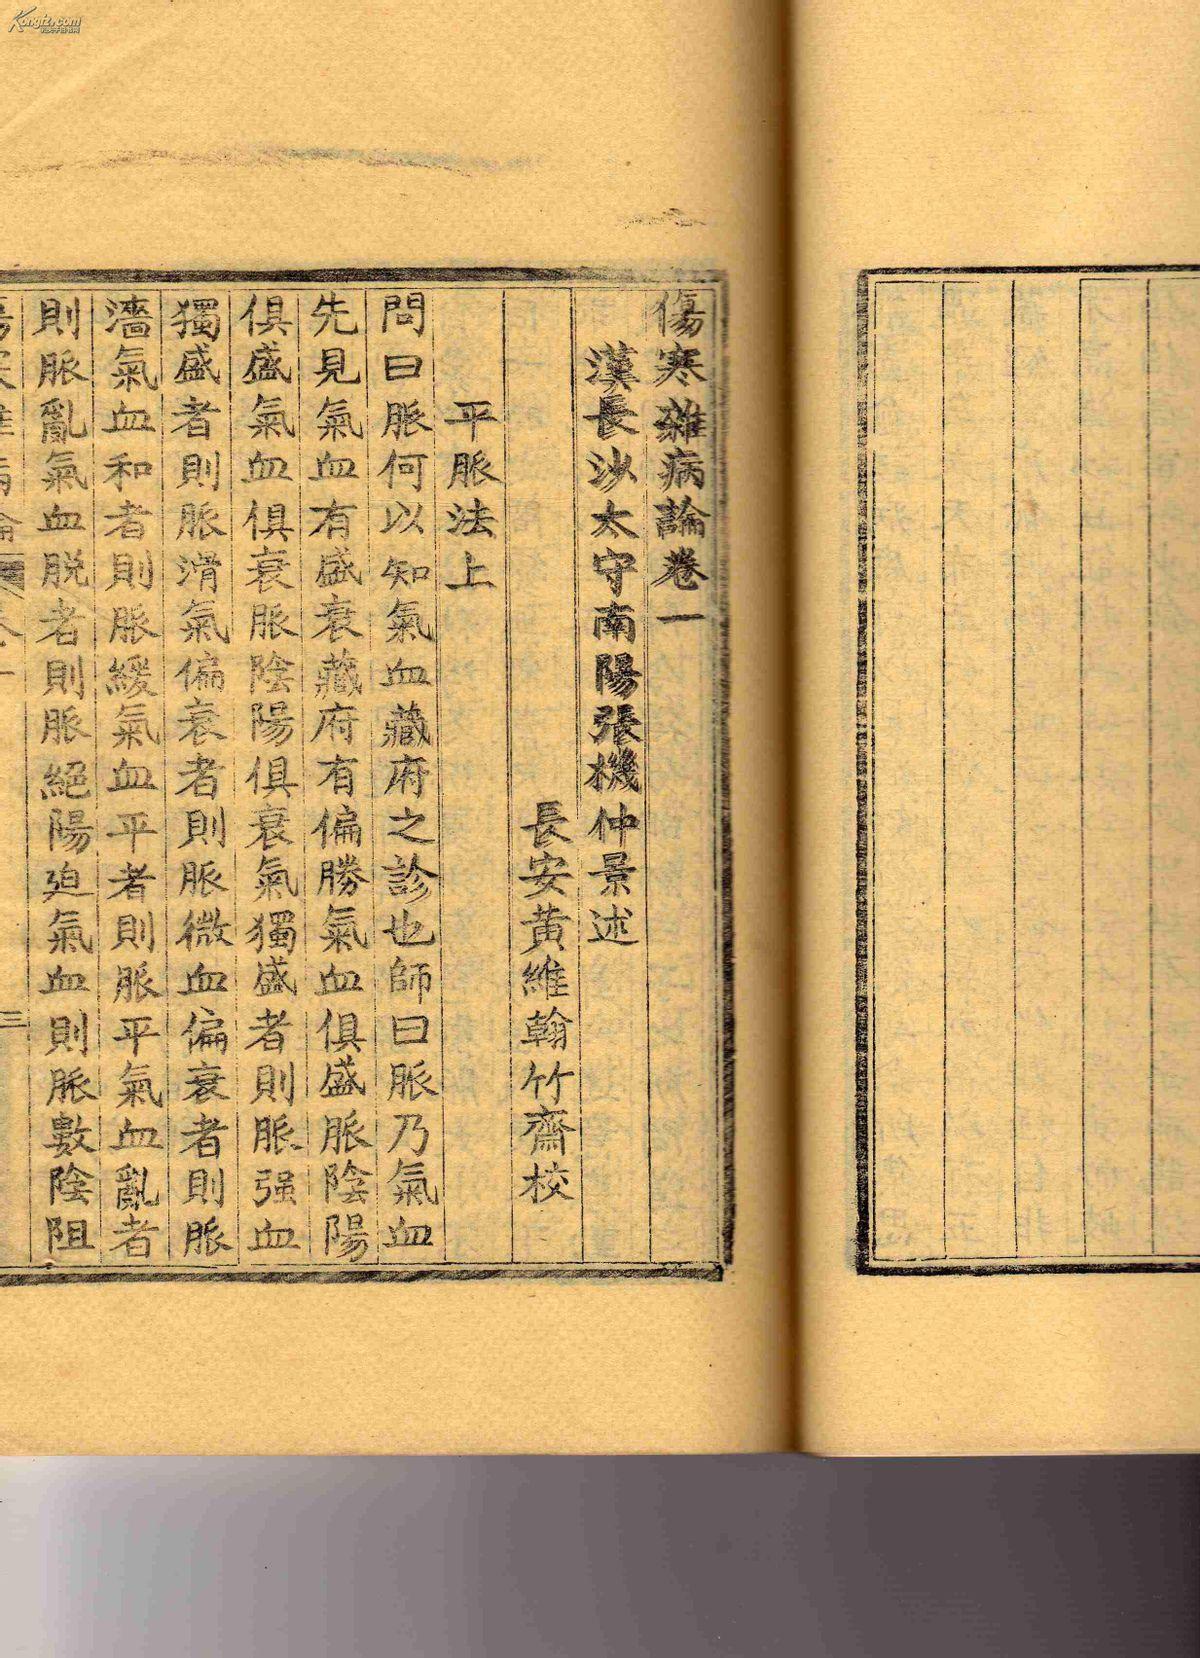 傷寒雜病論卷一
漢長沙太守南陽張機仲景述
長安黃維翰竹齋校
平脈法上
問曰脈何以知氣血藏府之診也師曰脈乃氣血
先見氣血有盛衰藏府有偏勝氣血俱盛脈陰陽
俱盛氣血俱衰脈陰陽俱衰氣獨盛者則脈强血
獨盛者則脈滑氣偏衰者則脈微血偏衰者則脈
濇氣血和者則脈緩氣血平者則脈平氣血亂者
則脈亂氣血脱者則脈絕陽迫氣血則脈數陰阻
三
Kongfz.com